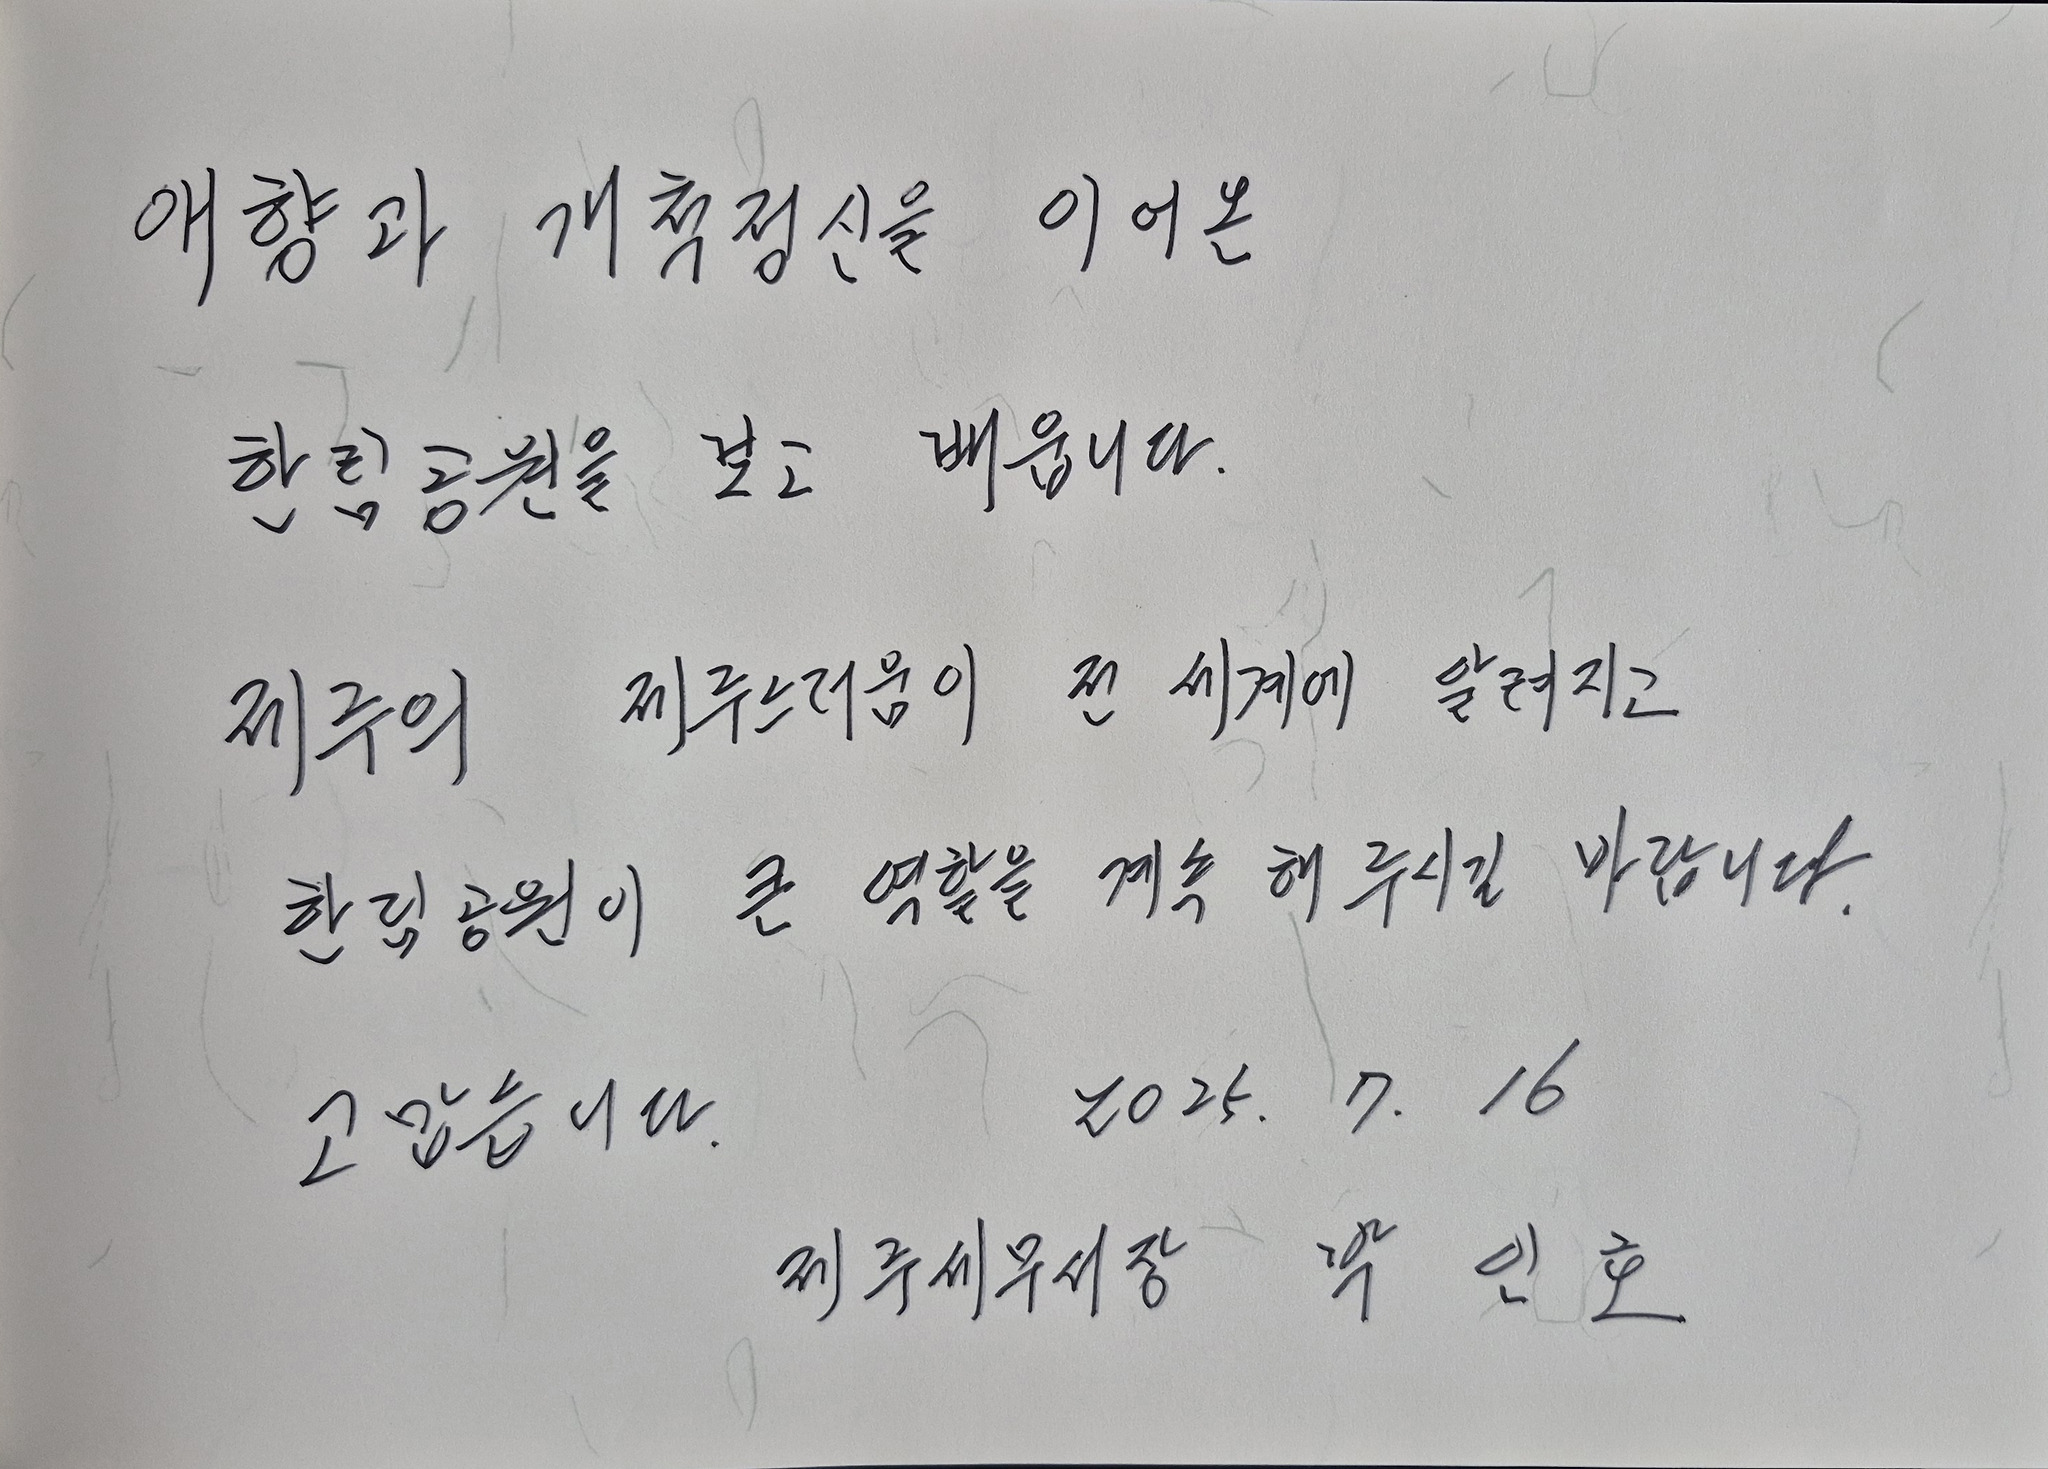 애향과 개척정신을 이어온
한림공원을 보고 배웁니다.
제주의 제주스러움이 전 세계에 알려지고
한림공원이 큰 역할을 계속 해주시길 바랍니다.
고맙습니다. 2025. 7. 16
제주세무서장 박 인 호